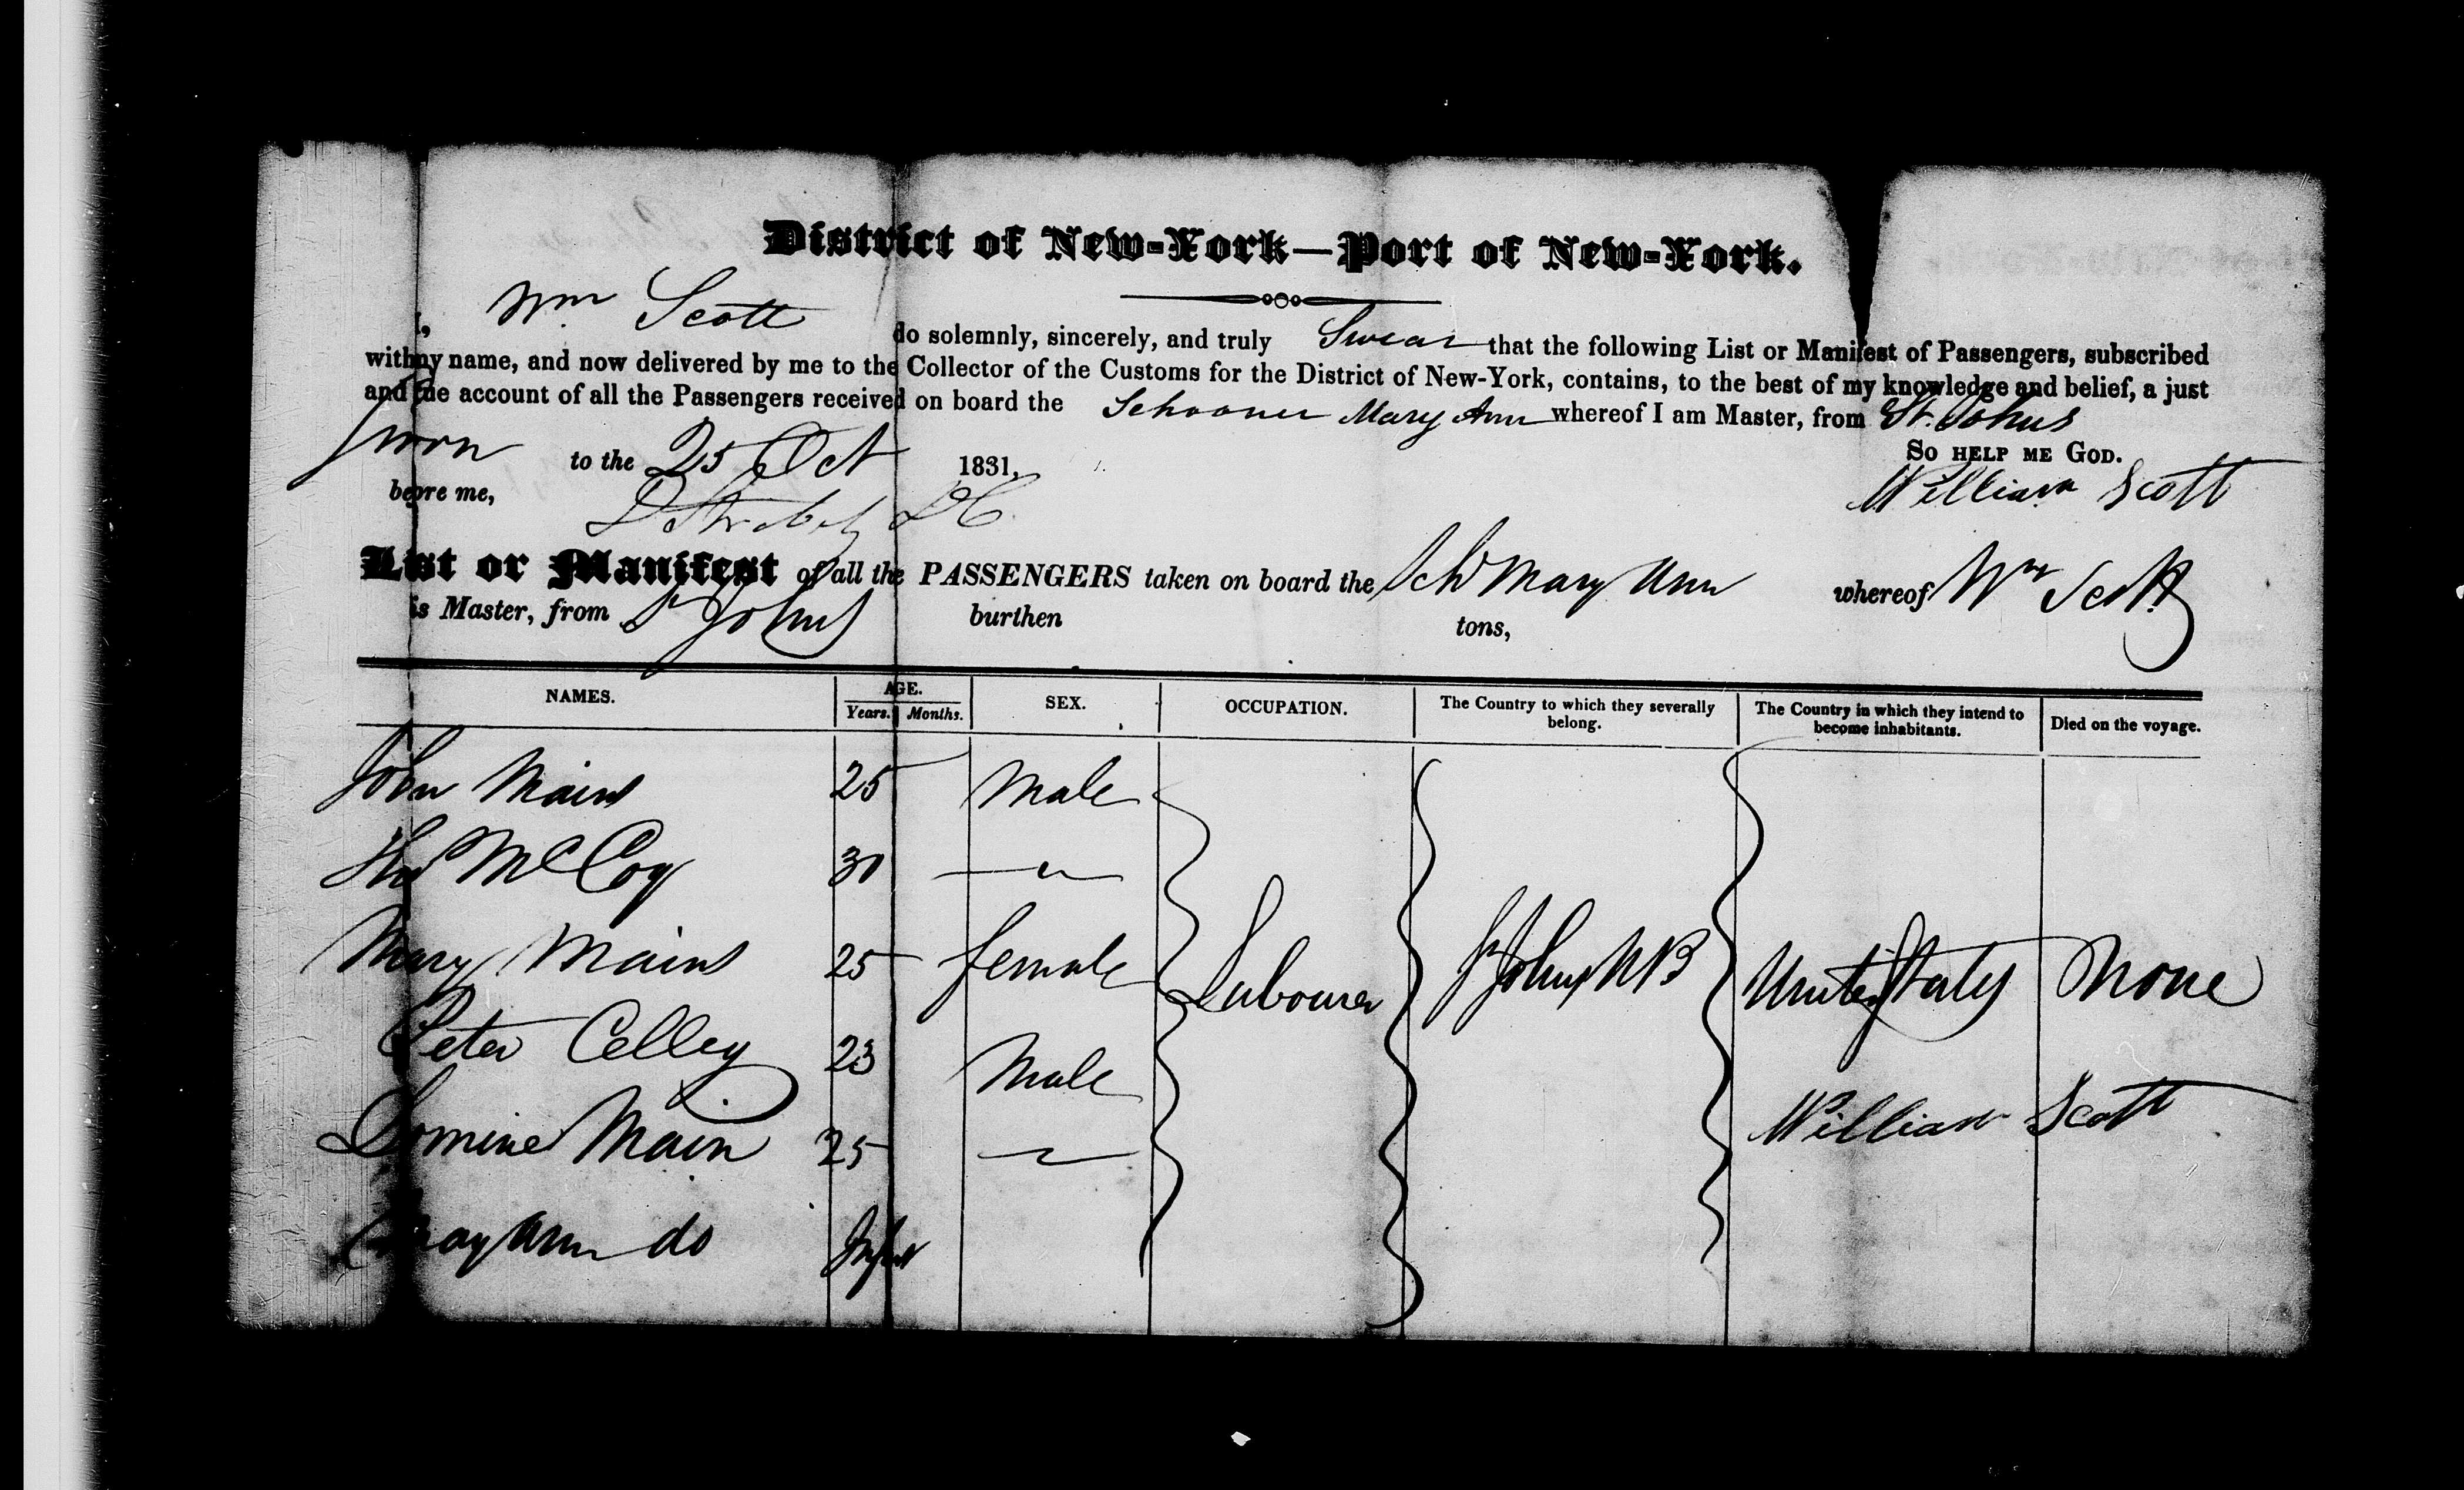 District of New-York—Port of New-York.
I, Wm Scott do solemnly, sincerely, and truly Swear that the following List or Manifest of Passengers, subscribed
with my name, and now delivered by me to the Collector of the Customs for the District of New-York, contains, to the best of my knowledge and belief, a just
and true account of all the Passengers received on board the Schooner Mary Ann whereof I am Master, from St. Johns
Sworn to the 25 Oct 1831. So help me God.
before me, William Scott
List or Manifest of all the PASSENGERS taken on board the Schr Mary Ann whereof Wm Scott
is Master, from St Johns burthen tons,
NAMES. AGE. Years. Months. SEX. OCCUPATION. The Country to which they severally belong. The Country in which they intend to become inhabitants. Died on the voyage.
John Mains 25 Male
Thos McCoy 30 "
Mary Mains 25 female Labourer St Johns NB United States None
Peter Celley 23 Male
William Scott
Domine Main 25 "
Mary Ann do Infant